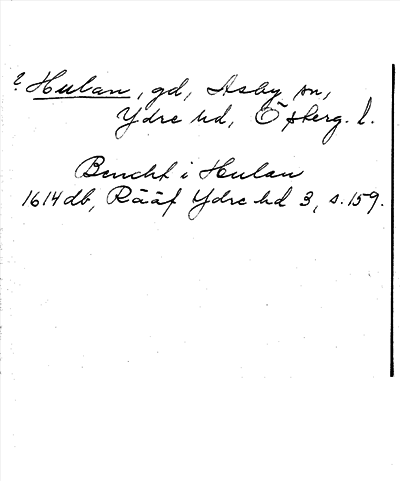 ? Hulan, gd, Asby sn,
Ydre hd, Österg. l.
Bencht i Hulan
1614 db, Rääf Ydre hd 3, s. 159.